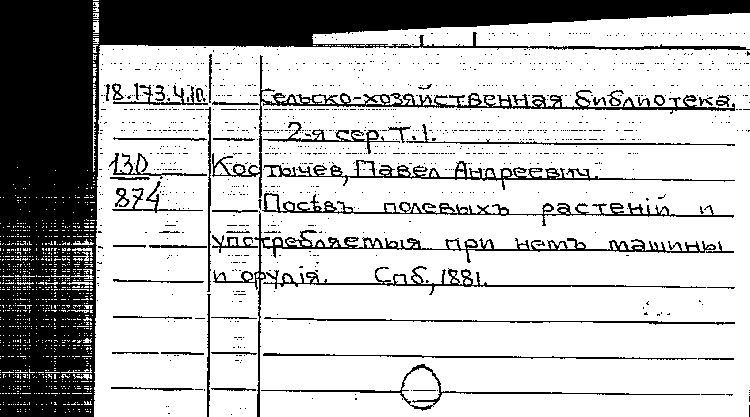 18.173.4.10. Сельско-хозяйственная библиотека.
2-я сер. Т. 1.
130 Костычев, Павел Андреевич.
874 Посѣвъ полевыхъ растенiй и
употребляемыя при немъ машины
и орудiя. Спб., 1881.